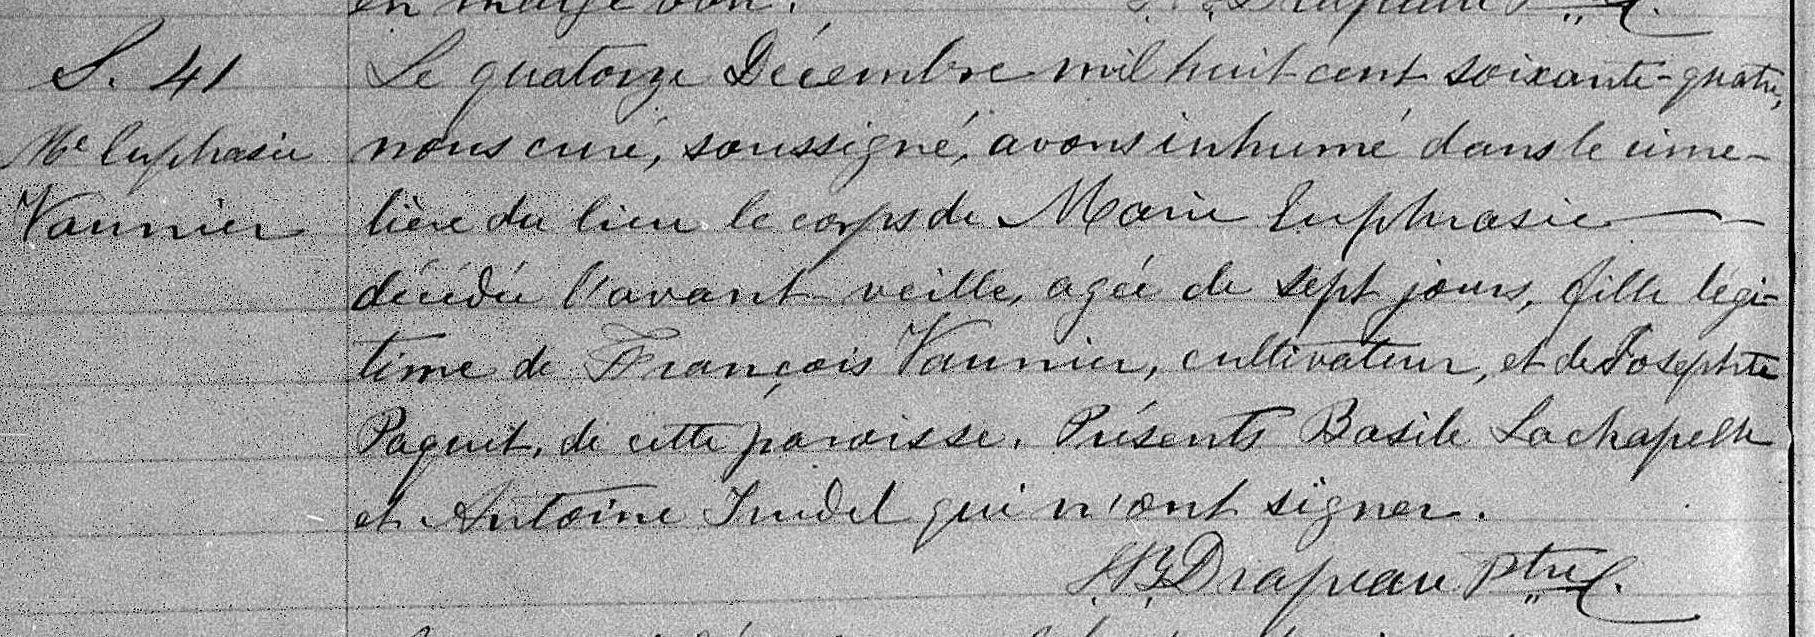 en marge bon.
Drapeau Ptre
S. 41
Me Euphrasie
Vannier
Le quatorze Décembre mil huit cent soixante-quatre,
nous curé, soussigné, avons inhumé dans le cime-
tière du lieu le corps de Marie Euphrasie
décédée l'avant veille, agée de sept jours, fille légi-
time de François Vannier, cultivateur, et de Josephte
Paquet, de cette paroisse. Présents Basile Lachapelle
et Antoine qui n'ont signer.
J.B. Drapeau Ptre